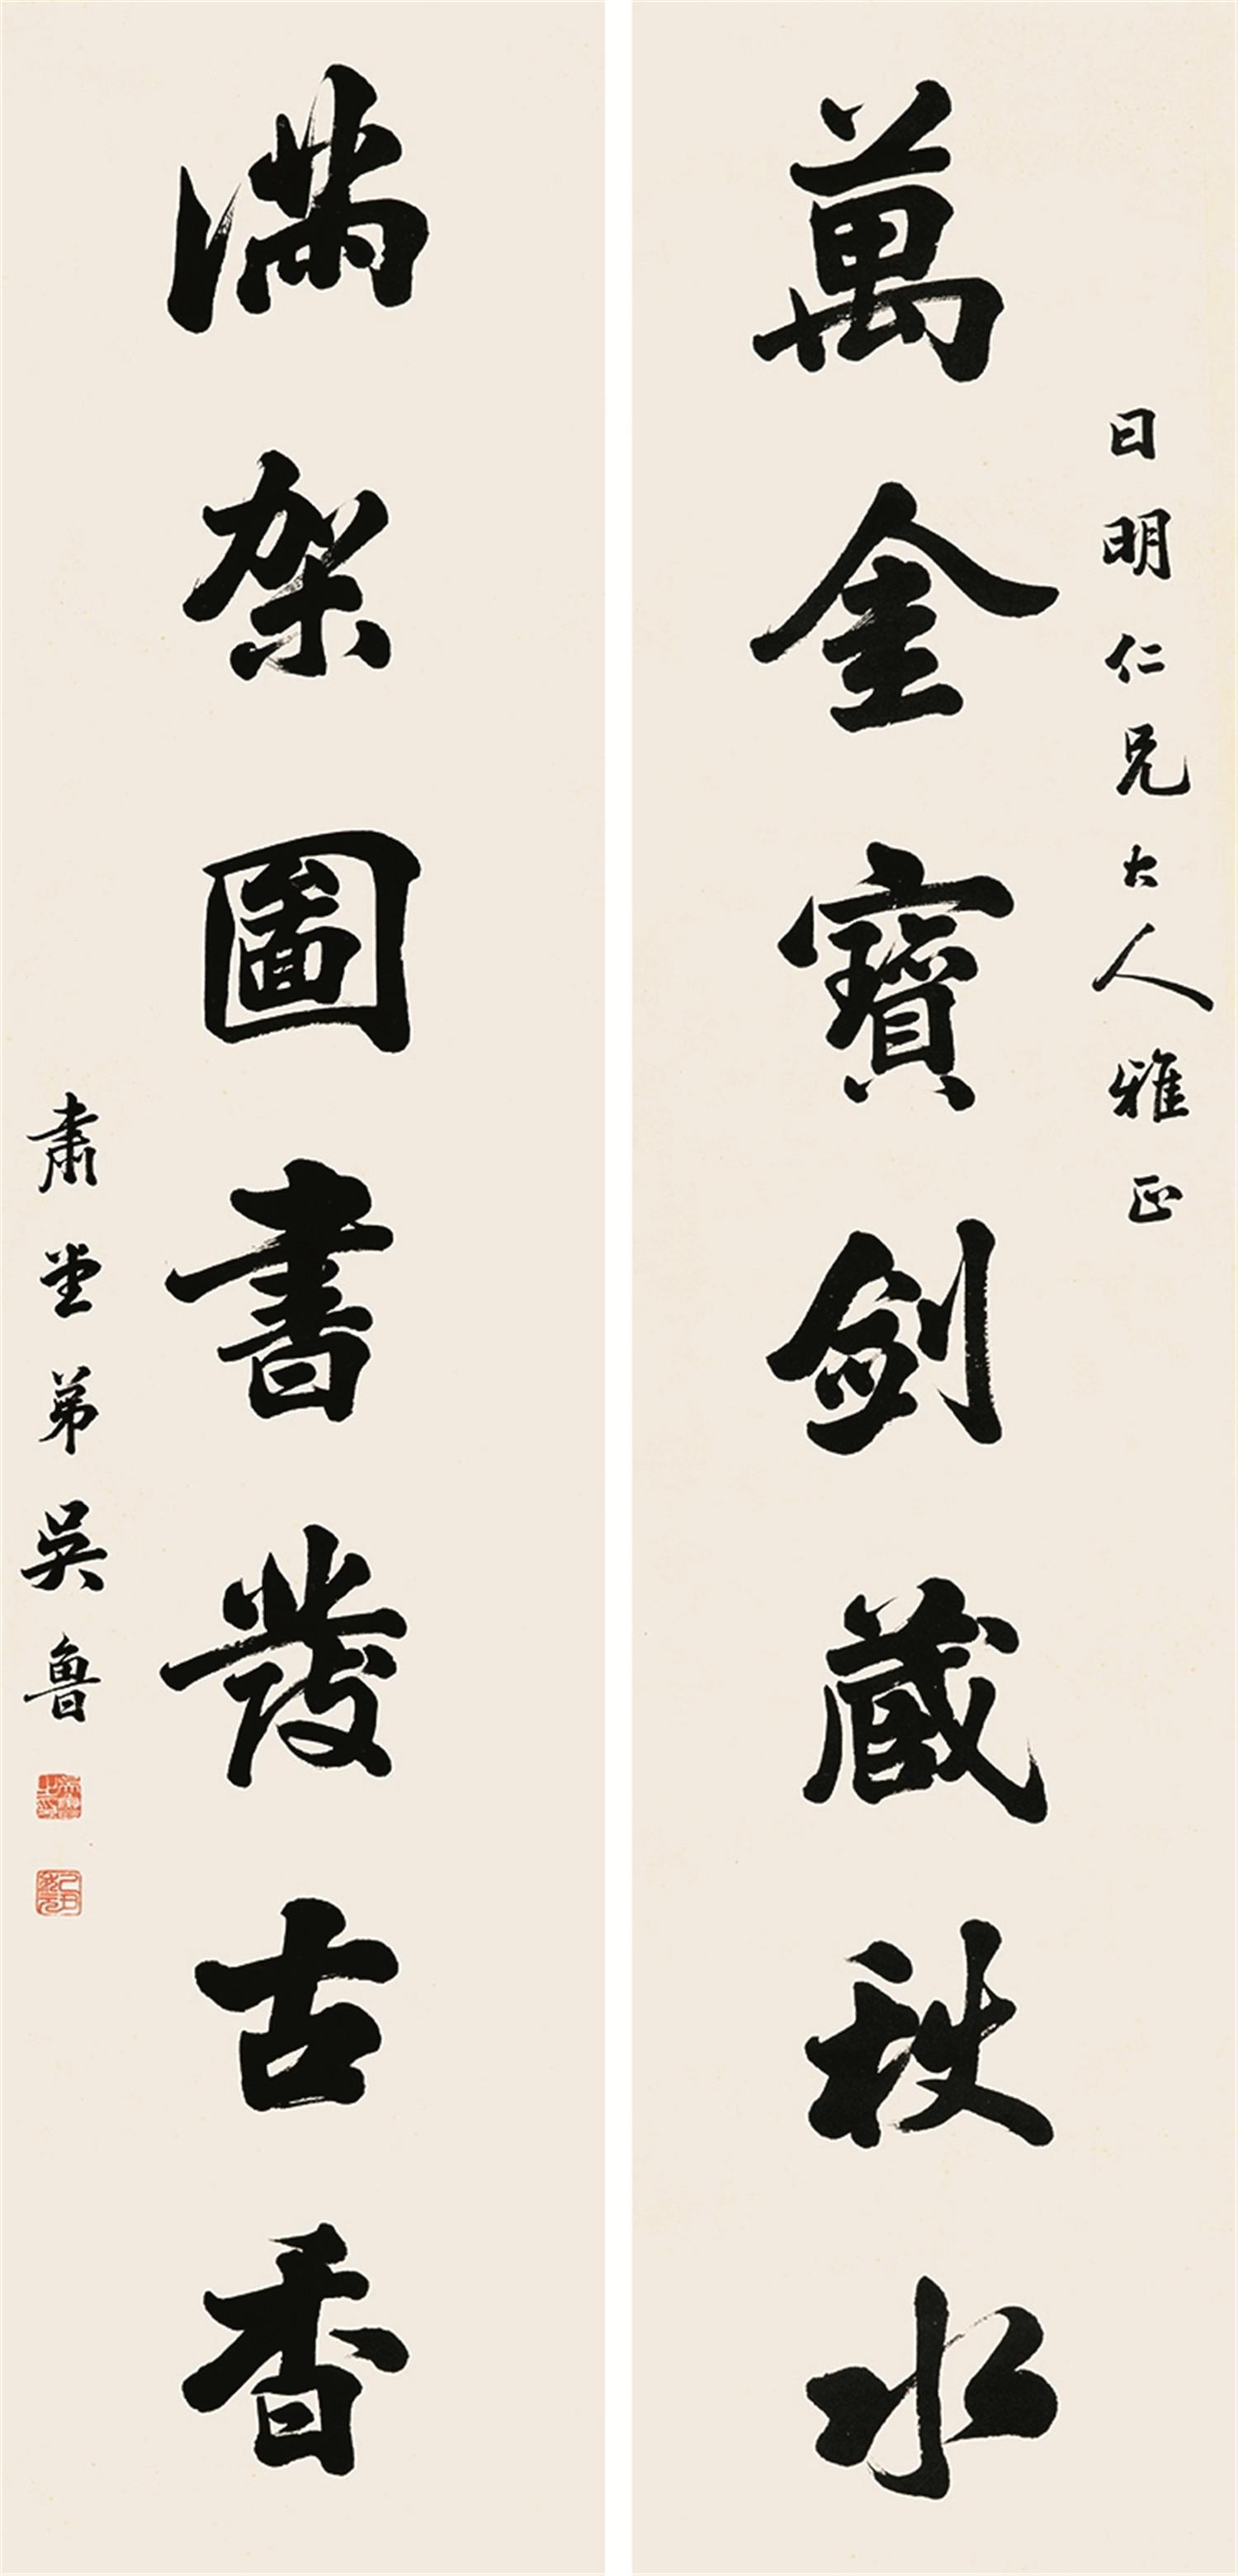 萬金寶劍藏秋水
日明仁兄大人雅正
滿架圖書發古香
肅堂弟吳魯